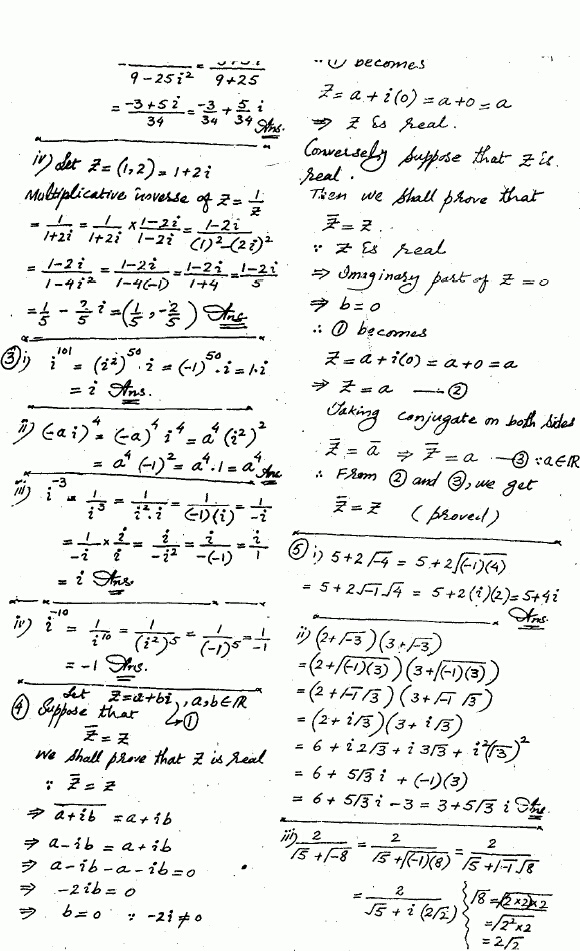 9 - 25i² 9 + 25
= -3 + 5i / 34 = -3/34 + 5/34 i Ans.
iv) Let Z = (1, 2) = 1 + 2i
Multiplicative inverse of Z = 1/Z
= 1/1+2i = 1/1+2i × 1-2i/1-2i = 1-2i/(1)²-(2i)²
= 1-2i/1-4i² = 1-2i/1-4(-1) = 1-2i/1+4 = 1-2i/5
= 1/5 - 2/5 i = (1/5, -2/5) Ans
③ i) i¹⁰¹ = (i²)⁵⁰ · i = (-1)⁵⁰ · i = 1·i
= i Ans.
ii) (-ai)⁴ = (-a)⁴ i⁴ = a⁴ (i²)²
= a⁴ (-1)² = a⁴ · 1 = a⁴ Ans
iii) i⁻³ = 1/i³ = 1/i²·i = 1/(-1)(i) = 1/-i
= 1/-i × i/i = i/-i² = i/-(-1) = i/1
= i Ans.
iv) i⁻¹⁰ = 1/i¹⁰ = 1/(i²)⁵ = 1/(-1)⁵ = 1/-1
= -1 Ans.
Let Z = a + bi, a, b ∈ R
④ Suppose that ①
Z̄ = Z
We shall prove that Z is real
∵ Z̄ = Z
⇒ \overline{a + ib} = a + ib
⇒ a - ib = a + ib
⇒ a - ib - a - ib = 0
⇒ -2ib = 0
⇒ b = 0 ∵ -2i ≠ 0
∴ ① becomes
Z = a + i(0) = a + 0 = a
⇒ Z is real.
Conversely suppose that Z is
real.
Then we shall prove that
Z̄ = Z.
∵ Z is real
⇒ Imaginary part of Z = 0
⇒ b = 0
∴ ① becomes
Z = a + i(0) = a + 0 = a
⇒ Z = a — ②
Taking conjugate on both sides
Z̄ = ā ⇒ Z̄ = a — ③ ∵ a ∈ R
∴ From ② and ③, we get
Z̄ = Z (proved)
⑤ i) 5 + 2√-4 = 5 + 2√(-1)(4)
= 5 + 2√-1 √4 = 5 + 2(i)(2) = 5 + 4i
Ans.
ii) (2 + √-3)(3 + √-3)
= (2 + √(-1)(3))(3 + √(-1)(3))
= (2 + √-1 √3)(3 + √-1 √3)
= (2 + i√3)(3 + i√3)
= 6 + i2√3 + i3√3 + i²(√3)²
= 6 + 5√3 i + (-1)(3)
= 6 + 5√3 i - 3 = 3 + 5√3 i Ans
iii) 2/√5 + √-8 = 2/√5 + √(-1)(8) = 2/√5 + √-1 √8
= 2/√5 + i(2√2) { √8 = √2×2×2
= √2²×2
= 2√2